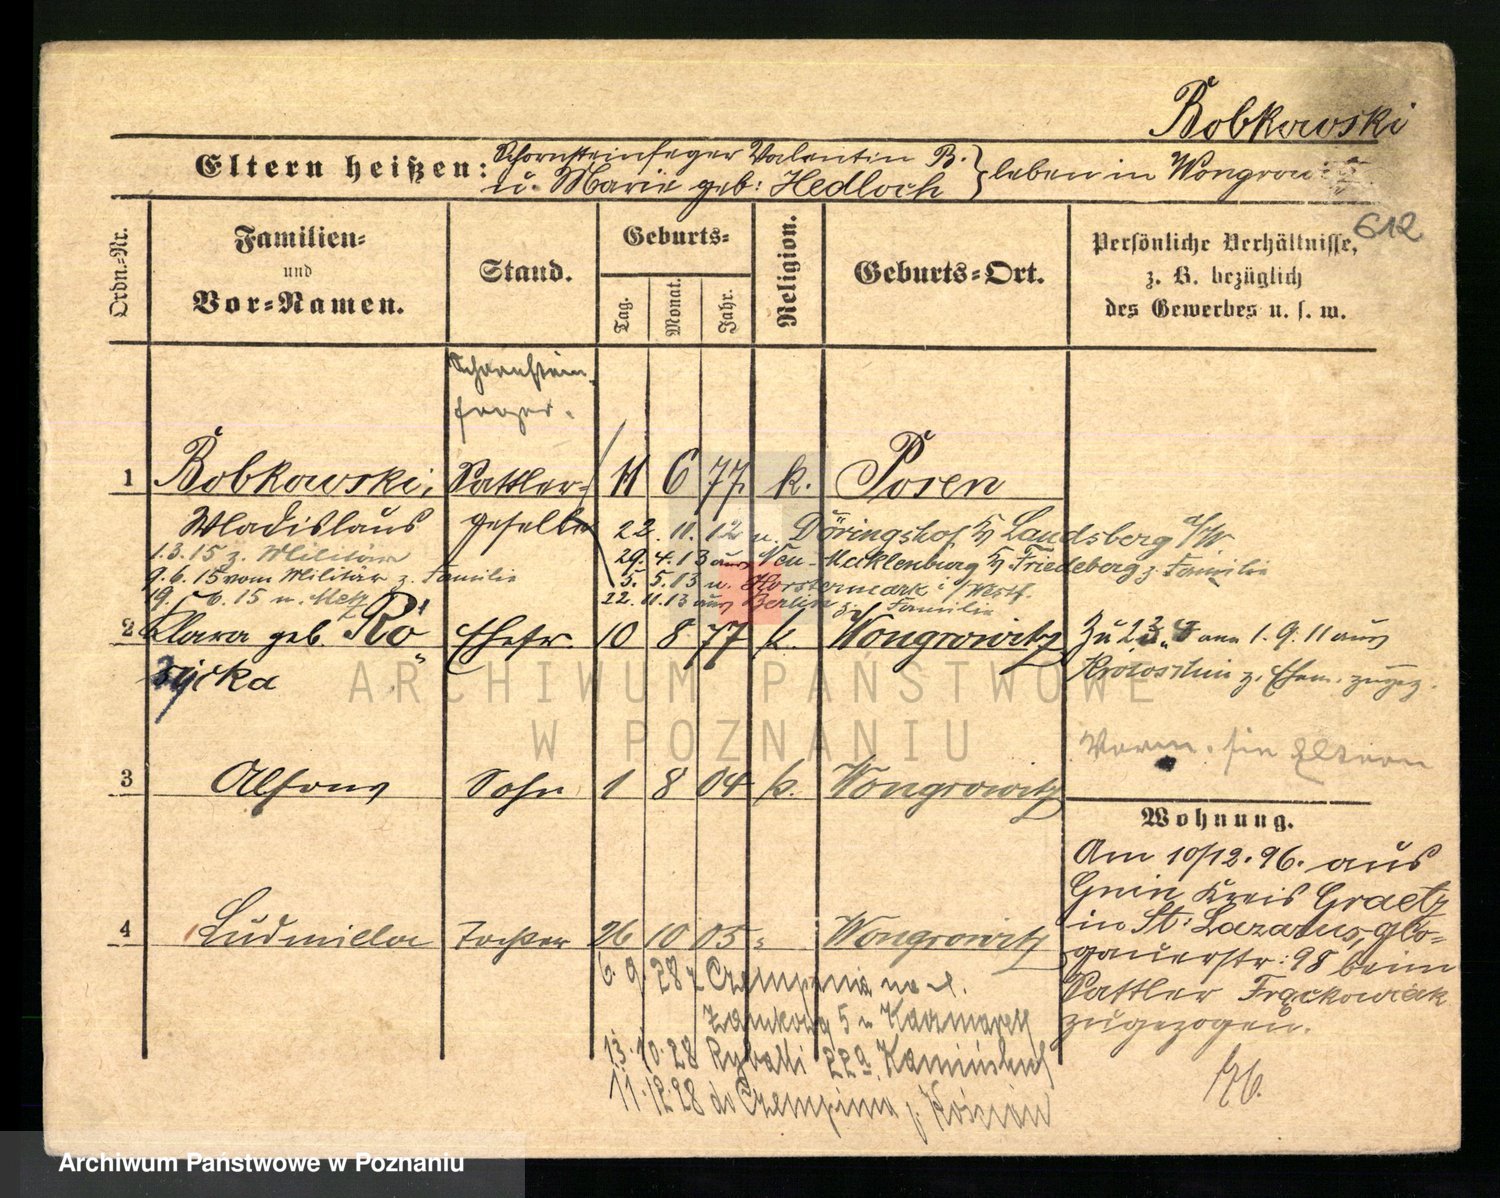 Bobkowski
Eltern heißen: Schornsteinfeger Valentin B.
u. Marie geb: Hedloch } leben in Wongrow
612
Ordn.-Nr.
Familien-
und
Vor-Namen.
Stand.
Geburts-
Tag. Monat. Jahr.
Religion.
Geburts-Ort.
Persönliche Verhältnisse,
z. B. bezüglich
des Gewerbes u. s. w.
Schornstein-
feger.
1 Bobkowski, Sattler- 11 6 77. k. Posen
Wladislaus geselle
22. 11. 12 n. Döringshof Landsberg a/W
1.3.15 z. Militär
29. 4. 13 aus Neu-Mecklenburg Friedeberg z. Familie
9.6.15 vom Militär z. Familie
5. 5. 13 n. Horstermark i/Westf.
19. 6. 15 n. Metz
22. 11. 13 aus Berlin zu Familie
2 Clara geb. Ró Ehefr. 10 8 77 k. Wongrowitz
życka
Zu 2, 3, 4 am 1. 9. 11 aus
Krotoschin z. Ehem. zugez.
3 Alfons Sohn 1 8 04 k. Wongrowitz
Vorm. sie Eltern
Wohnung.
Am 10/12. 96. aus
Gnin Kreis Graetz
in St: Lazarus, Glo-
gauerstr: 98 beim
Sattler Frąckowiak
zugezogen.
4 Ludmilla Tochter 26 10 05 " Wongrowitz
6. 9. 28 z Czempinia
Zamkowa 5 u Kaczmarek
13. 10. 28 Rybaki 22a Kamiński
11. 12 28 do Czempina p. Kościan
ARCHIWUM PAŃSTWOWE
W POZNANIU
Archiwum Państwowe w Poznaniu